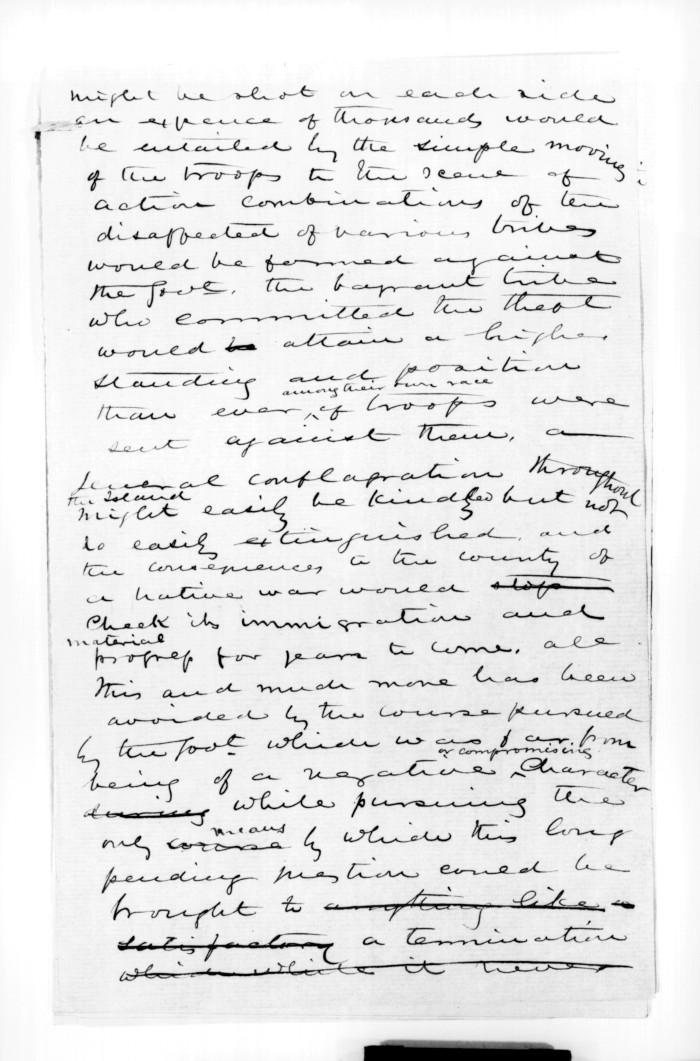 might be shot on each side
an expence of thousands would
be entailed by the simple moving
of the troops to the scene of
action combinations of the
disaffected of various tribes
would be formed against
the Govt. the vagrant tribe
who committed the theft
would be attain a higher
standing and position
among their own race
than ever, if troops were
sent against them, a
General conflagration throughout
the Island
might easily be kindled but not
so easily extinguished, and
the consequences to the country of
a native war would stop
Check its immigration and
material
progress for years to come. all
this and much more has been
avoided by the course pursued
by the Govt. which was far from
or compromising
being of a negative Character
during while pursuing the
means
only course by which this long
pending question could be
brought to anything like a
satisfactory a termination
which while it never